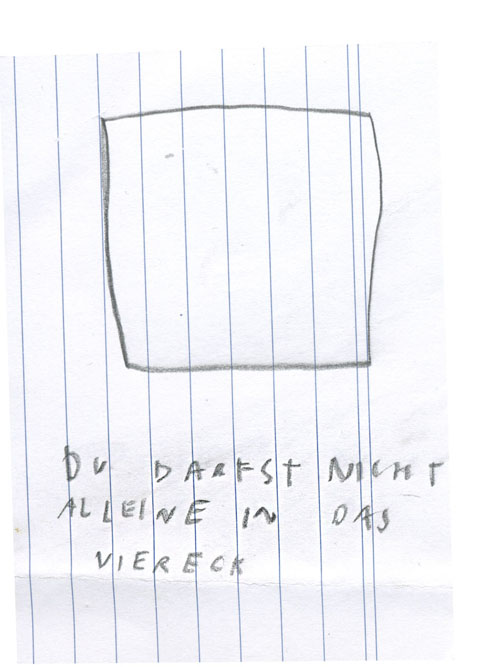 DU DARFST NICHT
ALLEINE IN DAS
VIERECK